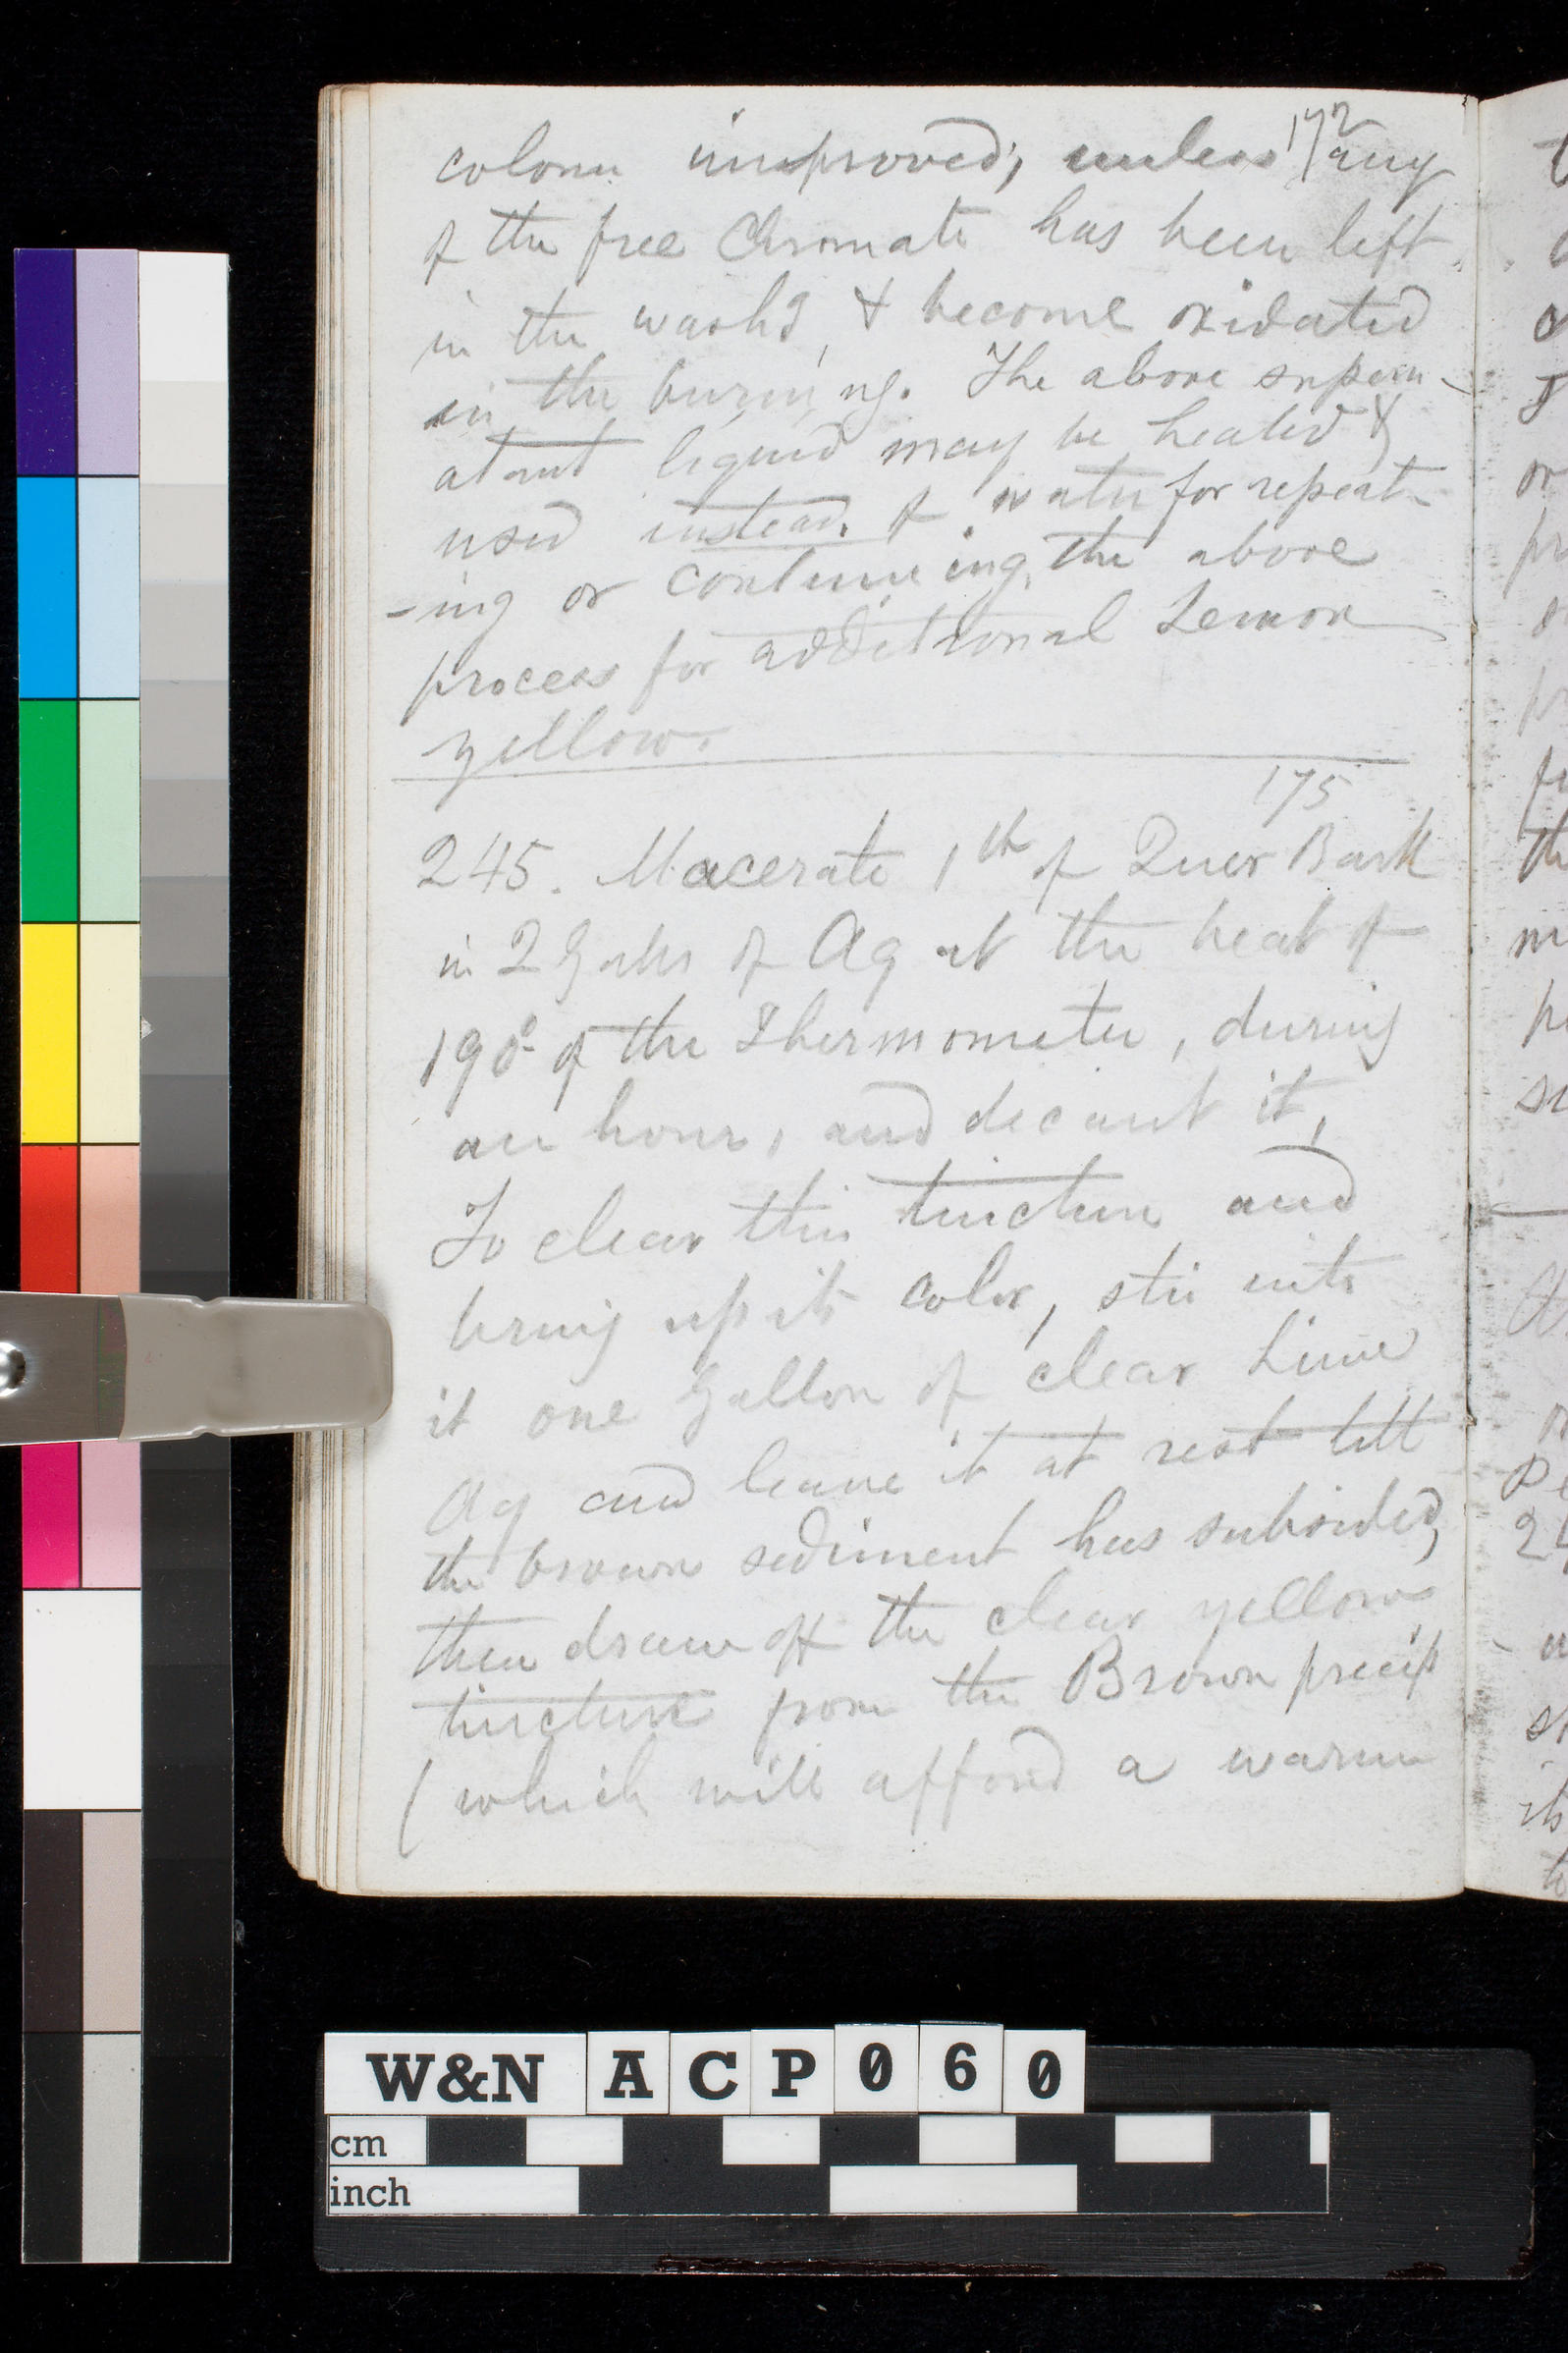 172
colour improved; unless any
of the free Chromate has been left
in the wash'd, & become oxidated
in the burning. The above supern-
atant liquid may be heated &
used instead of water for repeat-
-ing or continuing the above
process for additional Lemon
yellow.
175
245. Macerate 1 lb of Quer Bark
in 2 Galls of Aq at the heat of
190° of the Thermometer, during
an hour, and decant it,
To clear this tincture and
bring up its color, stir into
it one Gallon of clear Lime
Aq and leave it at rest till
the brown sediment has subsided,
then draw off the clear yellow
tincture from the Brown precip
(which will afford a warm
W&N ACP060
cm
inch